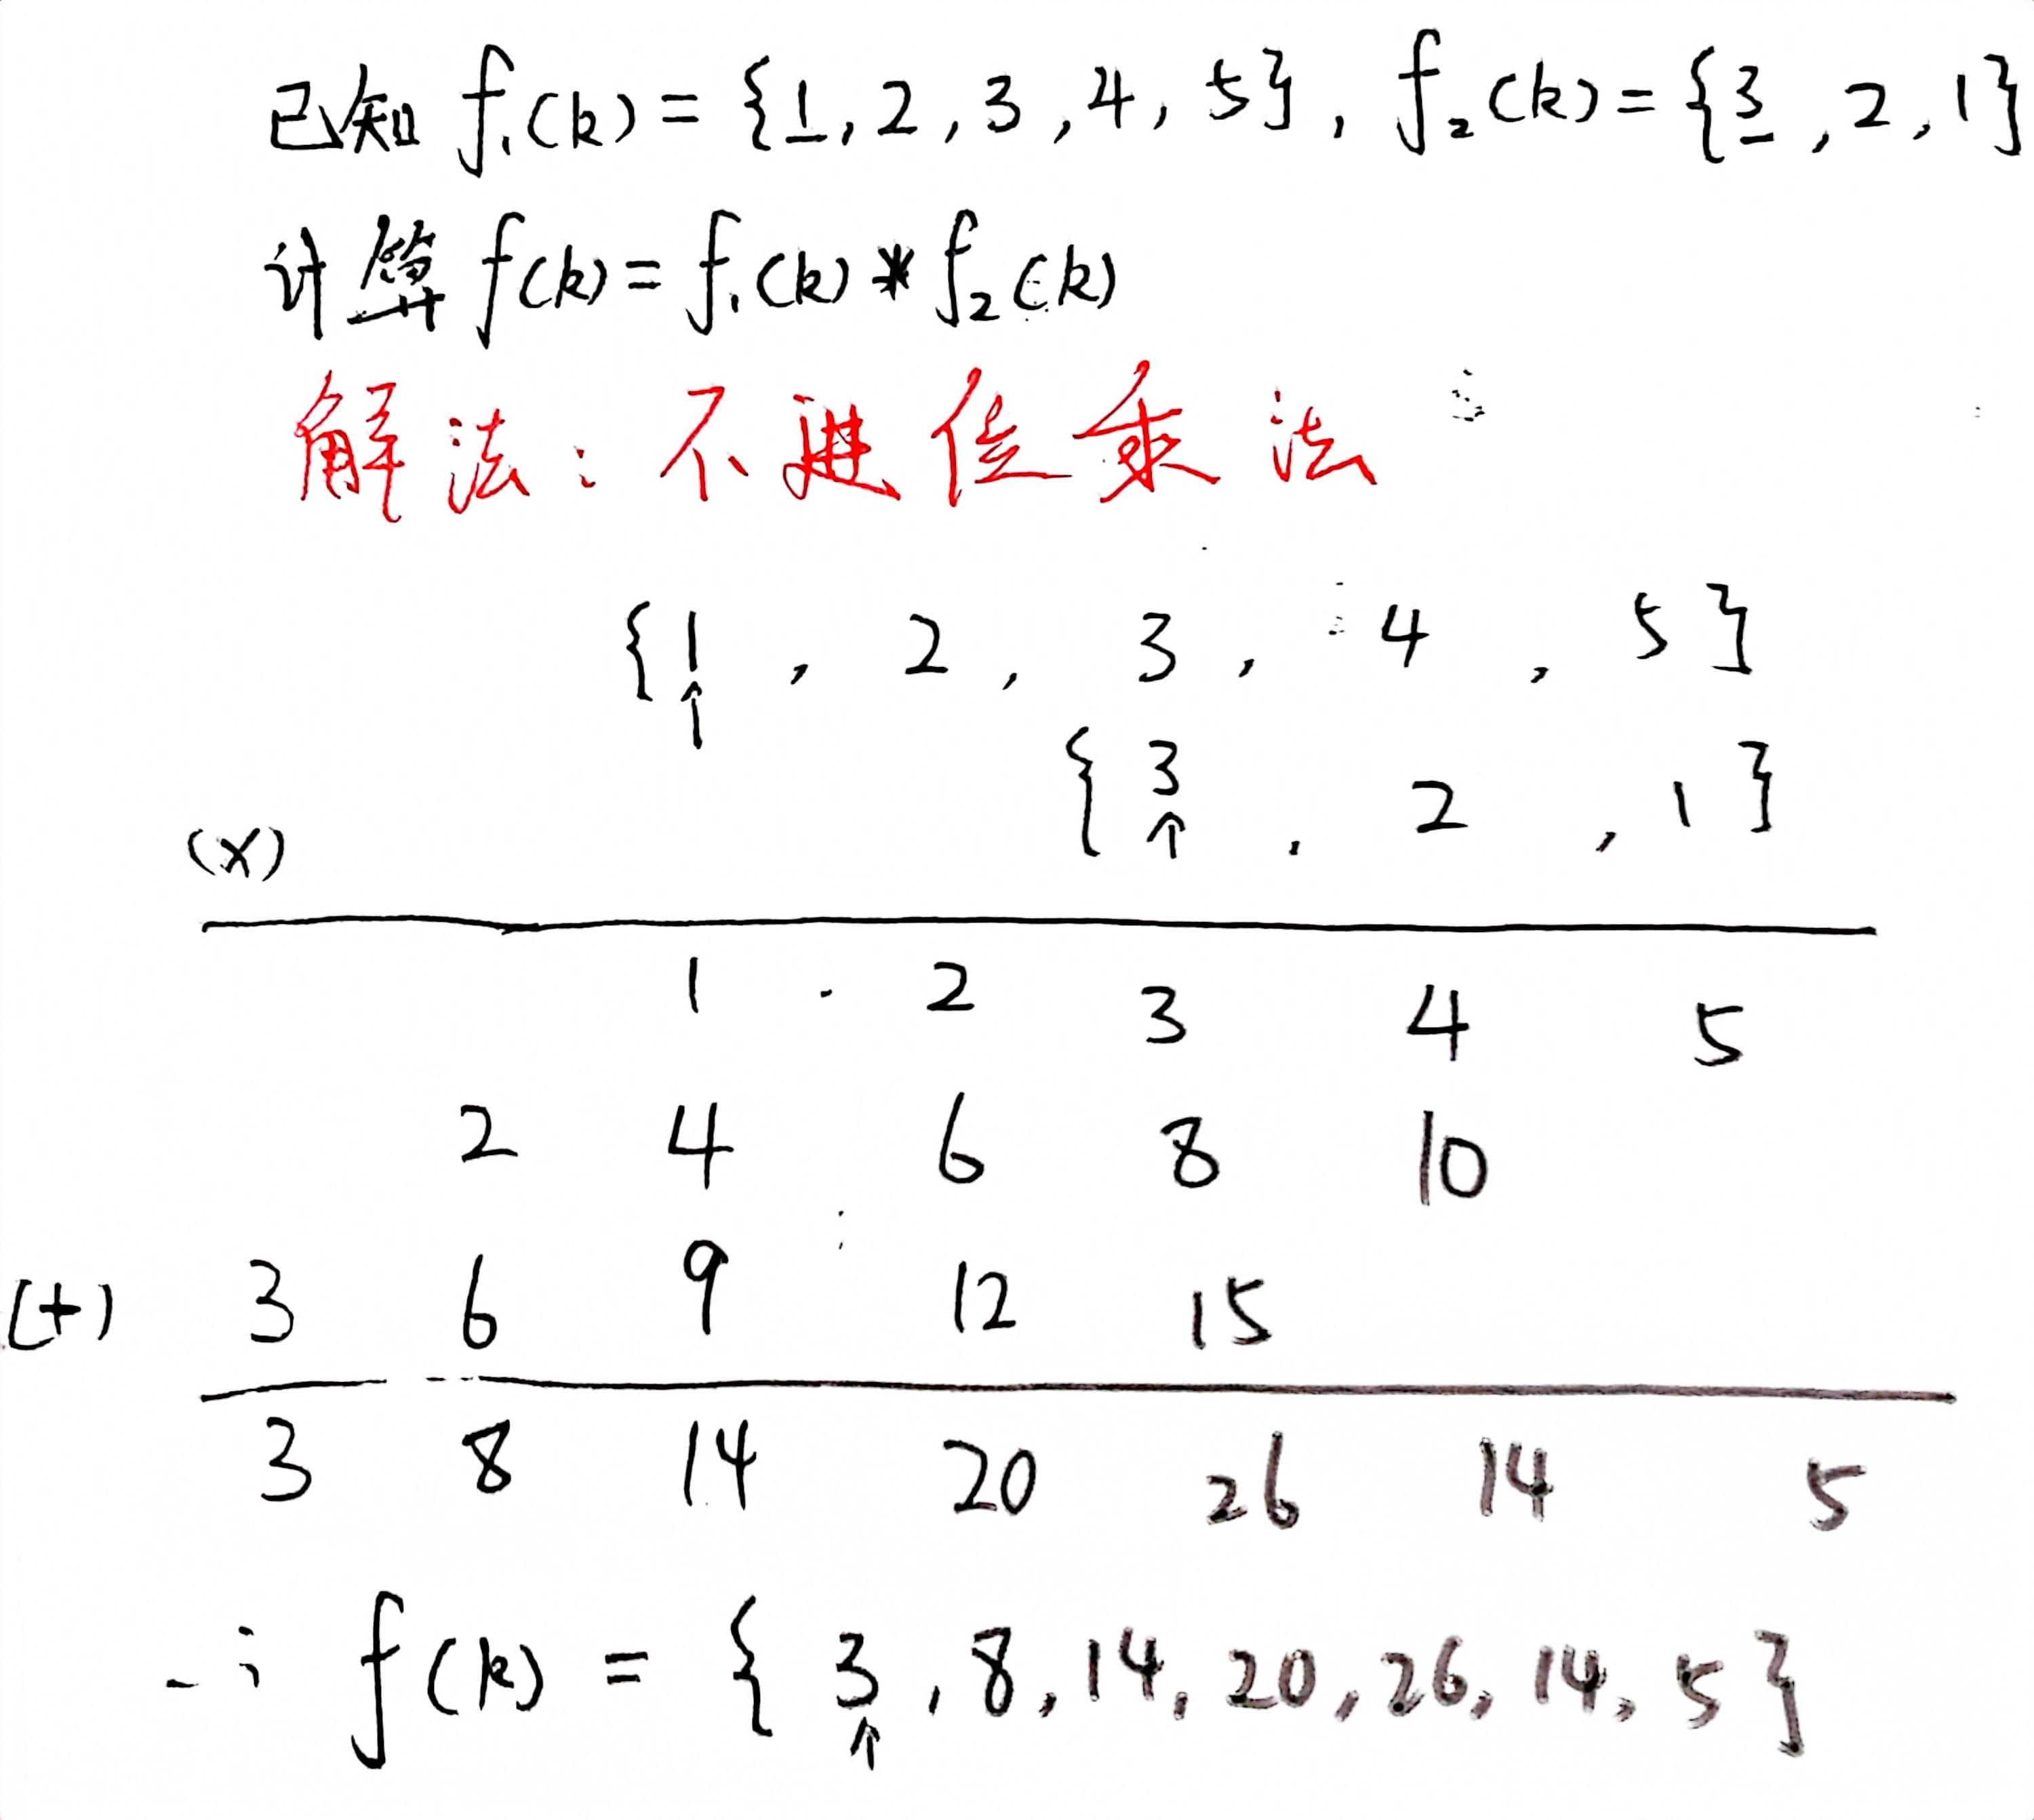 已知 f₁(k) = {1, 2, 3, 4, 5}, f₂(k) = {3, 2, 1}
计算 f(k) = f₁(k) * f₂(k)
解法：不进位乘法
{1, 2, 3, 4, 5}
↑
{3, 2, 1}
↑
(×)
1 2 3 4 5
2 4 6 8 10
(+) 3 6 9 12 15
3 8 14 20 26 14 5
∴ f(k) = {3, 8, 14, 20, 26, 14, 5}
↑